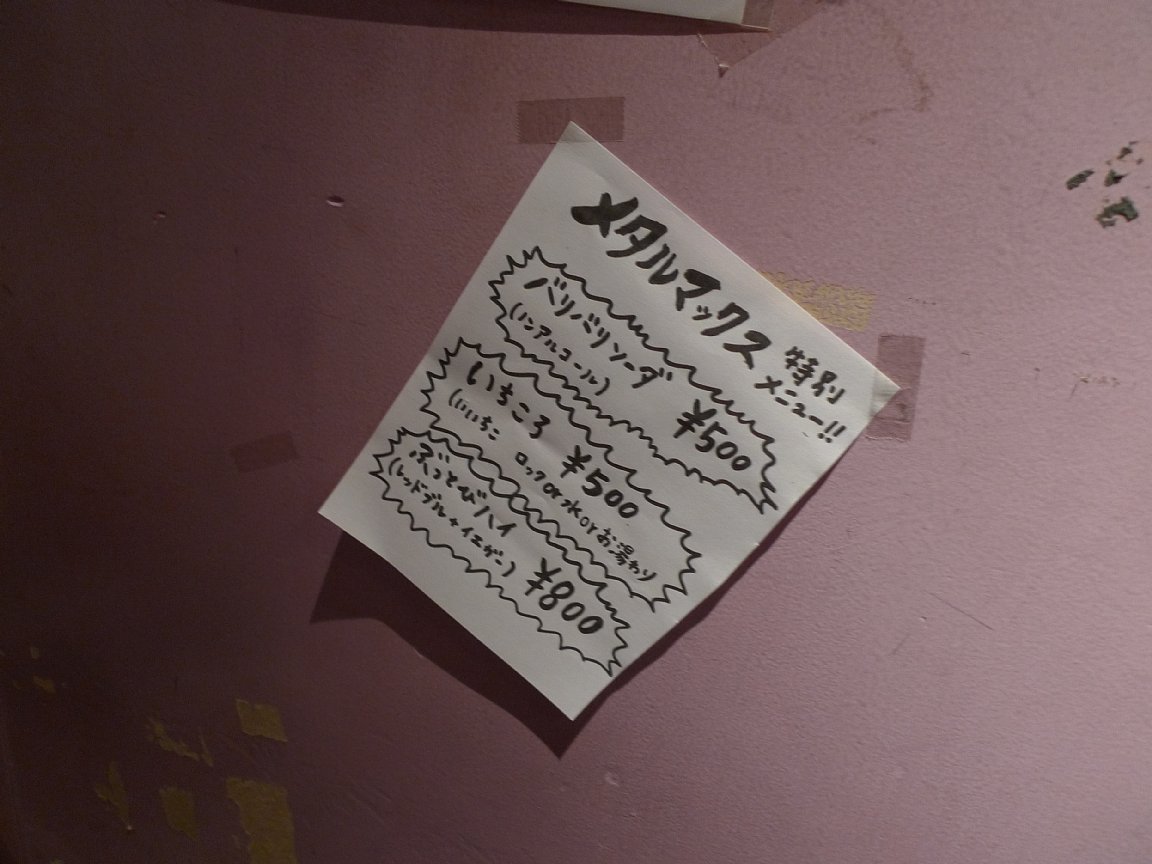 メタルマックス 特別
メニュー!!
バリバリソーダ
(ノンアルコール)
¥500
いちころ ¥500
(いいちこ ロックor水orお湯わり
ぶっとびハイ
(レッドブル+イエガー)
¥800